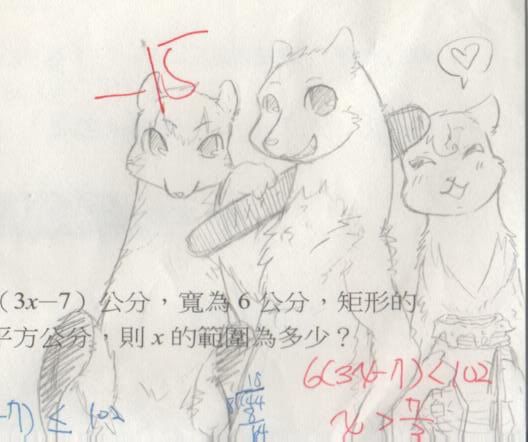 -15
(3x-7)公分，寬為 6 公分，矩形的
平方公分，則 x 的範圍為多少？
6(3x-7)<102
-7) ≤ 102
x > 7/3